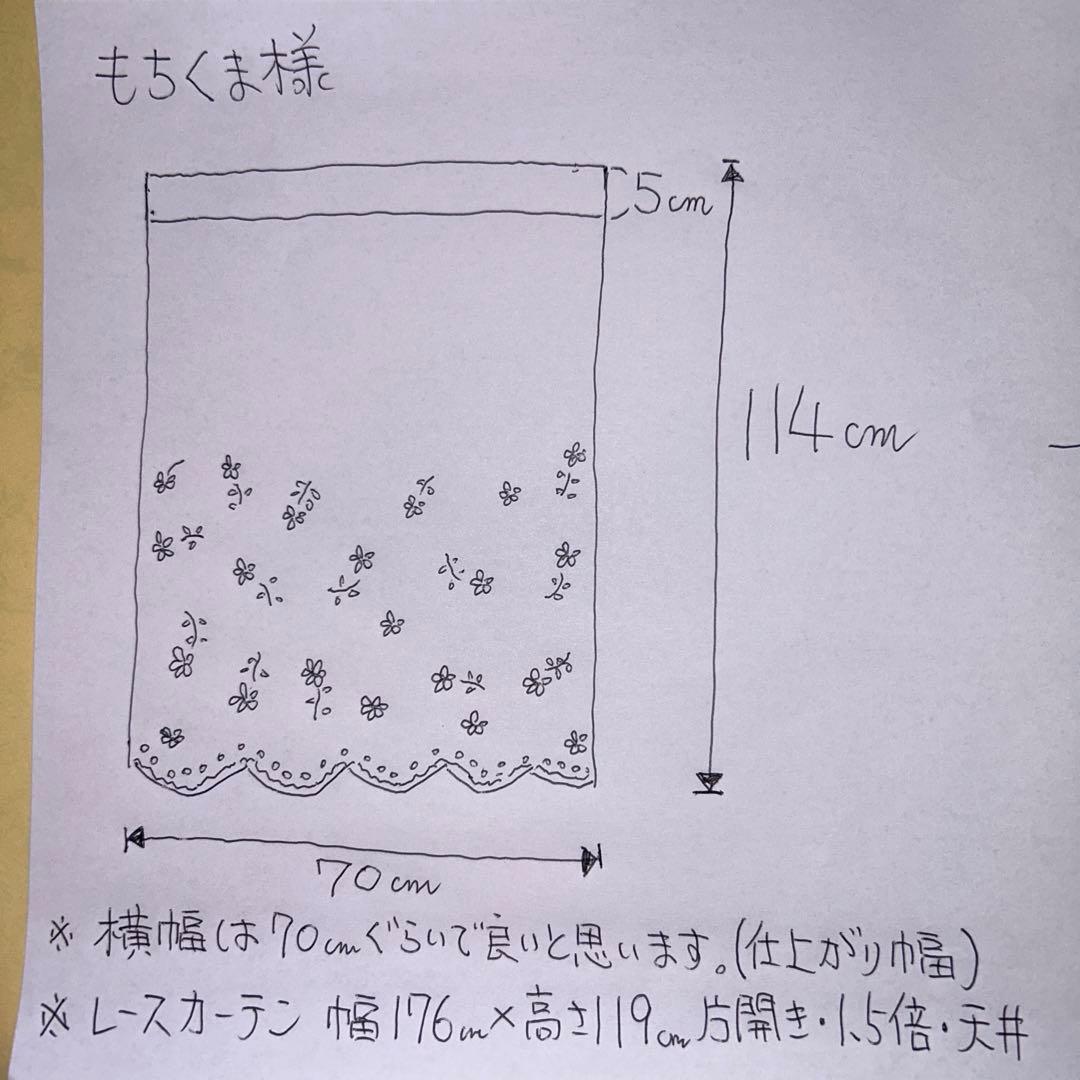 もちくま様
5cm
114cm
70cm
※ 横幅は70cmぐらいで良いと思います。(仕上がり巾幅)
※ レースカーテン 幅176cm×高さ119cm 片開き・1.5倍・天井